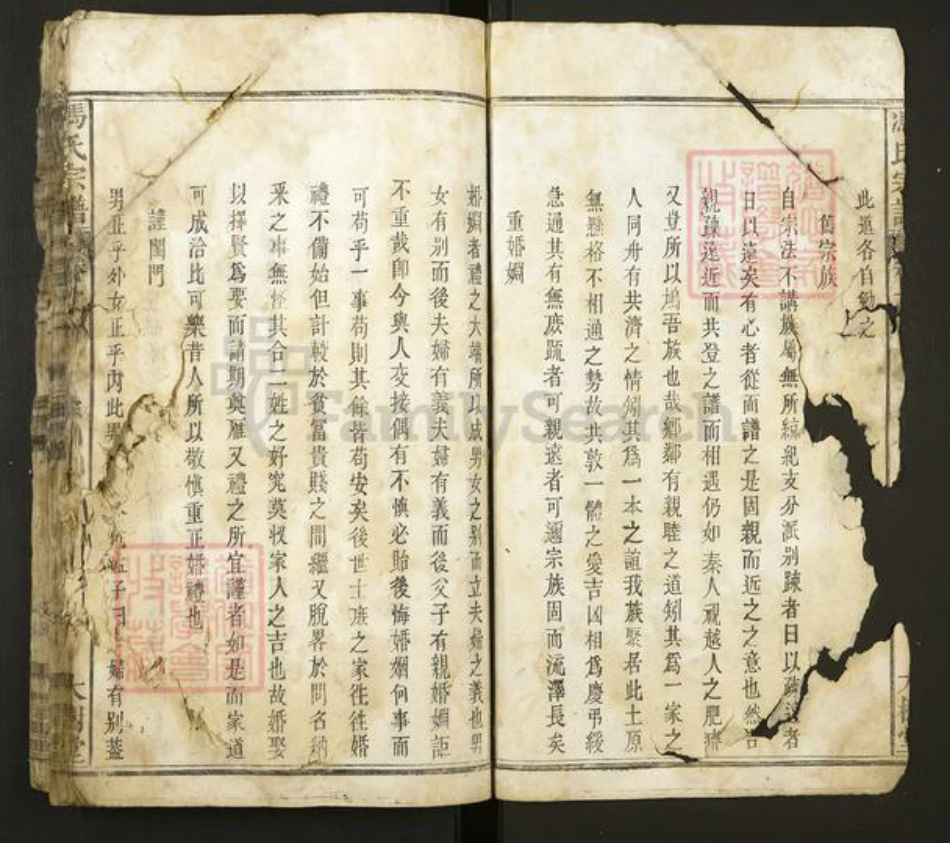 此過各自勉之
舊宗族
自宗法不講族屬無所綜紀支分派别踈者日以踈遠者
日以遠矣有心者從而譜之是固親而近之之意也然
親踈遠近而共登之譜而相遇仍如秦人視越人之肥瘠
又豈所以塲吾族也哉鄉鄰有親睦之道矧其爲一家之
人同舟有共濟之情矧其爲一本之誼我蔟聚居此土原
無懸格不相通之勢故共敦一體之愛吉凶相爲慶弔緩
急通其有無庶疏者可親遠者可邇宗族固而流澤長矣
重婚姻
婚姻者禮之大端所以成男女之别而立夫婦之義也男
女有别而後夫婦有義夫婦有義而後父子有親婚姻詎
不重哉卽今與人交接偶有不慎必貽後悔婚姻何事而
可苟乎一事苟則其餘皆苟安矣後世士庶之家徃徃婚
禮不備始但計較於貧富貴賤之間繼又脫畧於問名納
采之事無怪其合二姓之好究莫收家人之吉也故婚娶
以擇賢爲要而請期奠雁又禮之所宜謹者如是而家道
可成洽比可樂昔人所以敬慎重正婚禮也
謹閨門
男正乎外女正乎内此
子曰
婦有别蓋
馮氏宗譜
大樹堂
FamilySearch